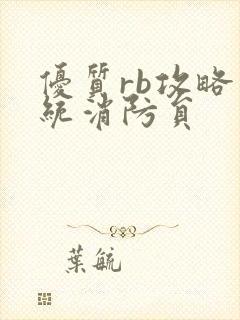 優質rb攻略
統消防員
葉毓